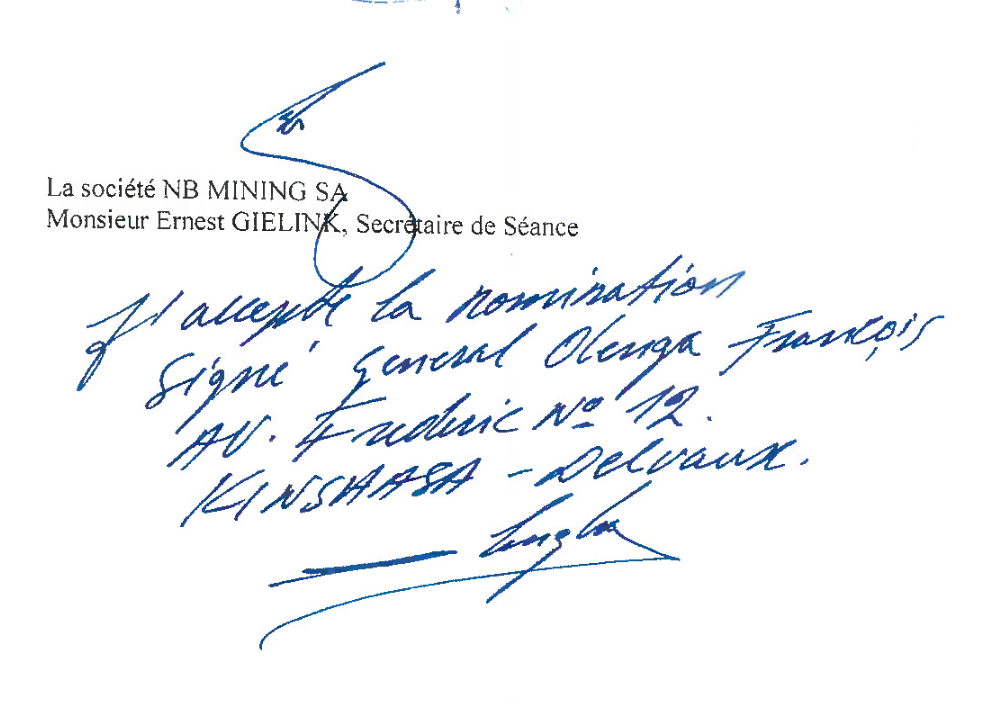 La société NB MINING SA
Monsieur Ernest GIELINK, Secrétaire de Séance
J'accepte la nomination
Signé General Olenga François
AV. Frederic Nº 12.
KINSHASA - Delvaux.